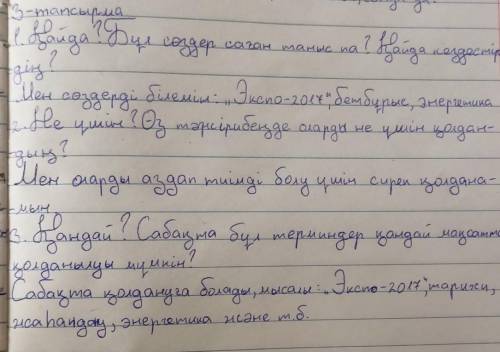 3-тапсырма
1. Қайда? Бұл сөздер саған таныс па? Қайда кездестір-
дің?
Мен сөздерді білемін: „Экспо-2017", бетбұрыс, энергетика
2. Не үшін? Өз тәжірибеңде оларды не үшін қолдан-
дың?
Мен оларды аздап тиімді болу үшін сирек қолдана-
мын
3. Қандай? Сабақта бұл терминдер қандай мақсатта
қолданылуы мүмкін?
Сабақта қолдануға болады, мысалы: „Экспо-2017", тарихи,
жаһандану, энергетика және т.б.